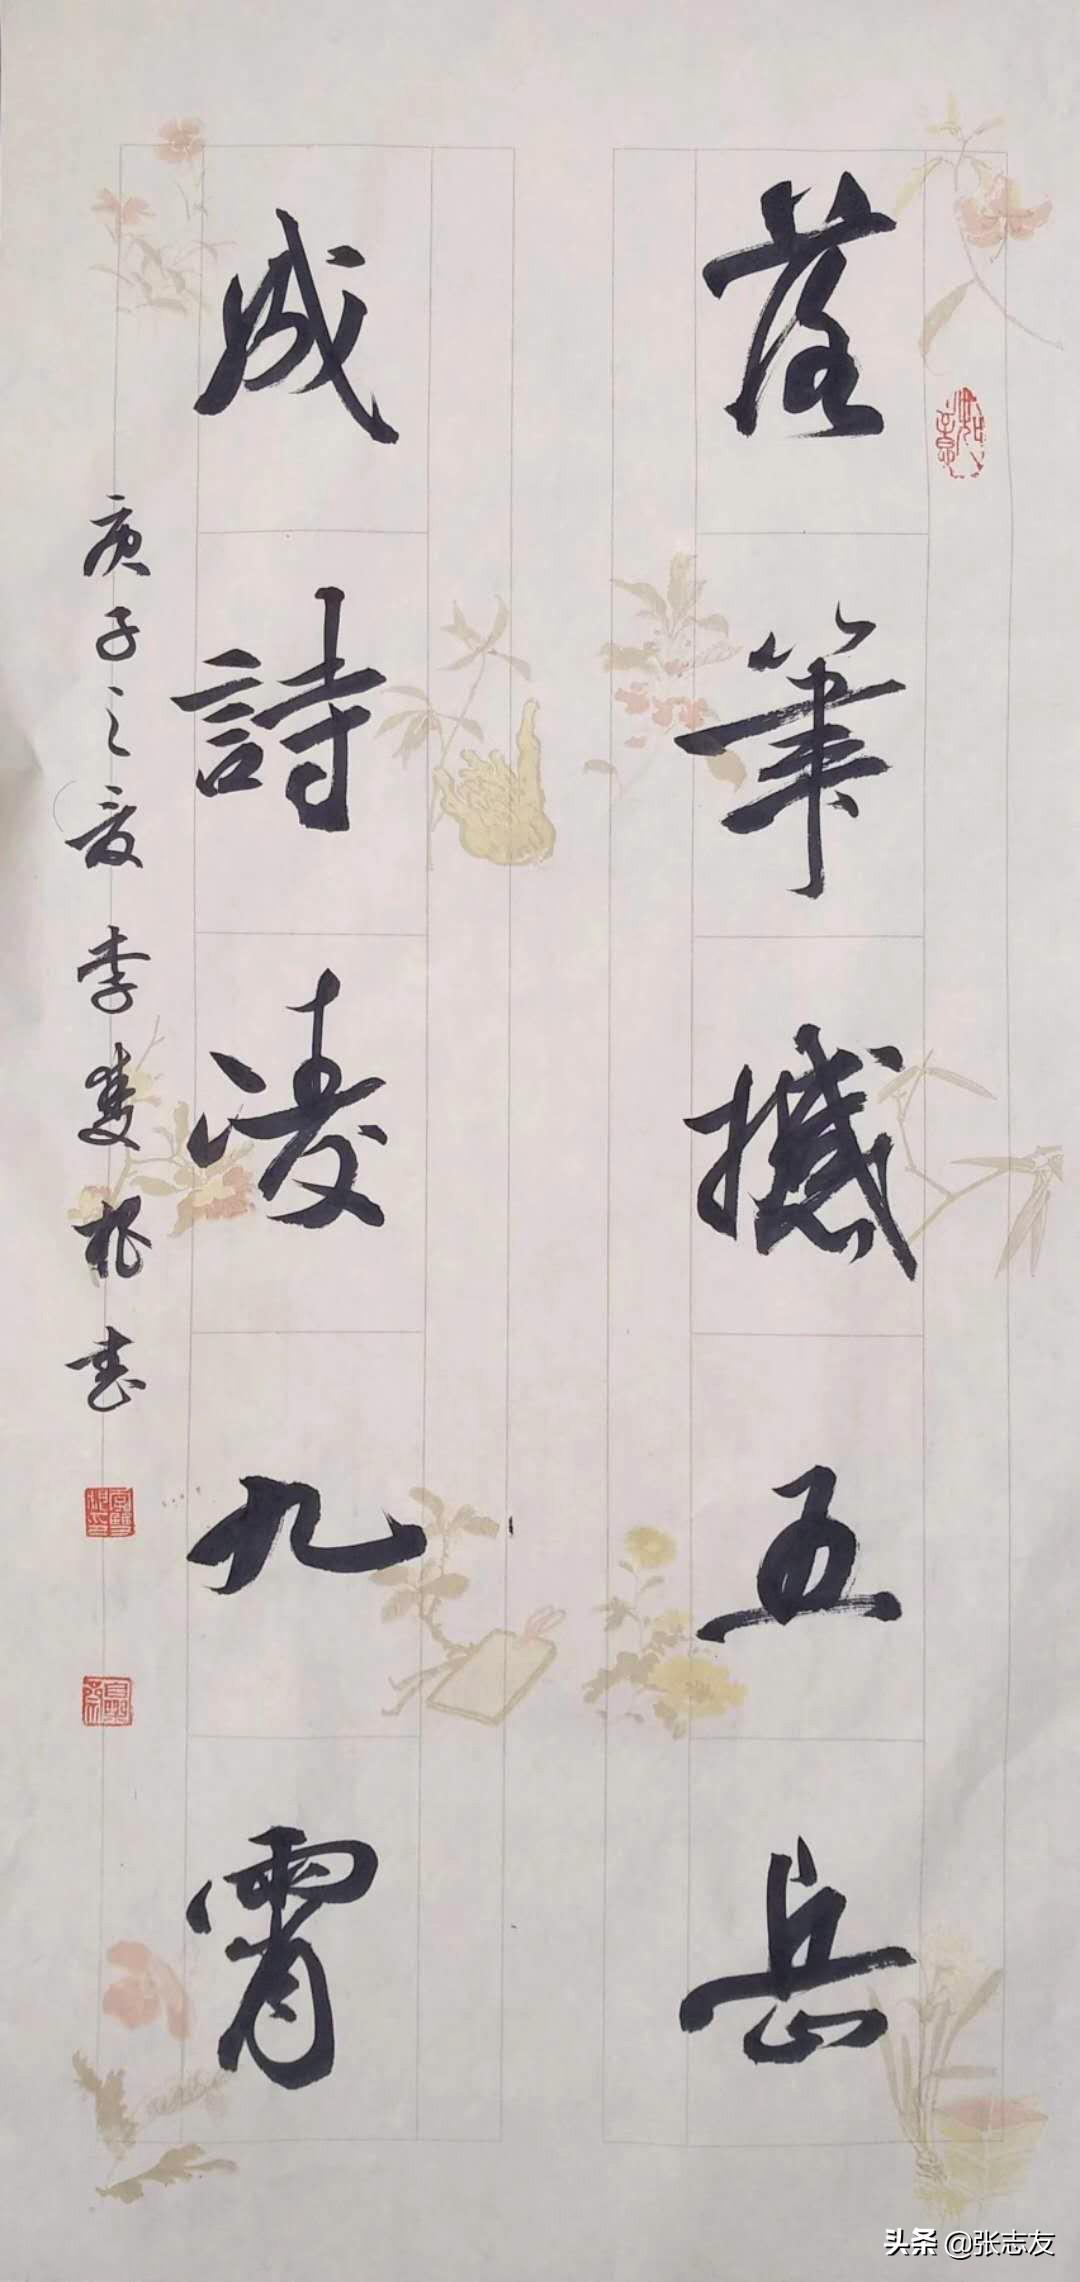 落筆撼五岳
成詩凌九霄
庚子之夏李雙根書
如意
头条 @张志友